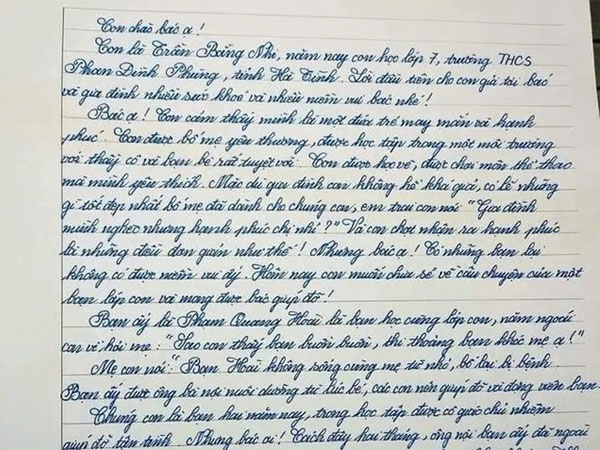 Con chào bác ạ!
Con là Trần Băng Nhi, năm nay con học lớp 7, trường THCS
Phan Đình Phùng, tỉnh Hà Tĩnh. Lời đầu tiên cho con gửi tới bác
và gia đình nhiều sức khoẻ và nhiều niềm vui bác nhé!
Bác ạ! Con cảm thấy mình là một đứa trẻ may mắn và hạnh
phúc. Con được bố mẹ yêu thương, được học tập trong một môi trường
với thầy cô và bạn bè rất tuyệt vời. Con được học vẽ, được chơi môn thể thao
mà mình yêu thích. Mặc dù gia đình con không hề khá giả, có lẽ những
gì tốt đẹp nhất bố mẹ đã dành cho chúng con, em trai con nói "Gia đình
mình nghèo nhưng hạnh phúc chị nhỉ?" Và con chợt nhận ra hạnh phúc
là những điều đơn giản như thế! Nhưng bác ạ! Có những bạn lại
không có được niềm vui ấy. Hôm nay con muốn chia sẻ về câu chuyện của một
bạn lớp con và mong được bác giúp đỡ!
Bạn ấy là Phạm Quang Hoài là bạn học cùng lớp con, năm ngoái
con về hỏi mẹ: "Sao con thấy bạn buồn buồn, thi thoảng bạn khóc mẹ ạ!"
Mẹ con nói: "Bạn Hoài không sống cùng mẹ từ nhỏ, bố lại bị bệnh
Bạn ấy được ông bà nội nuôi dưỡng từ lúc bé, các con nên giúp đỡ và động viên bạn
Chúng con là bạn hai năm nay, trong học tập được cô giáo chủ nhiệm
giúp đỡ tận tình. Nhưng bác ơi! Cách đây hai tháng, ông nội bạn ấy đã ngoài